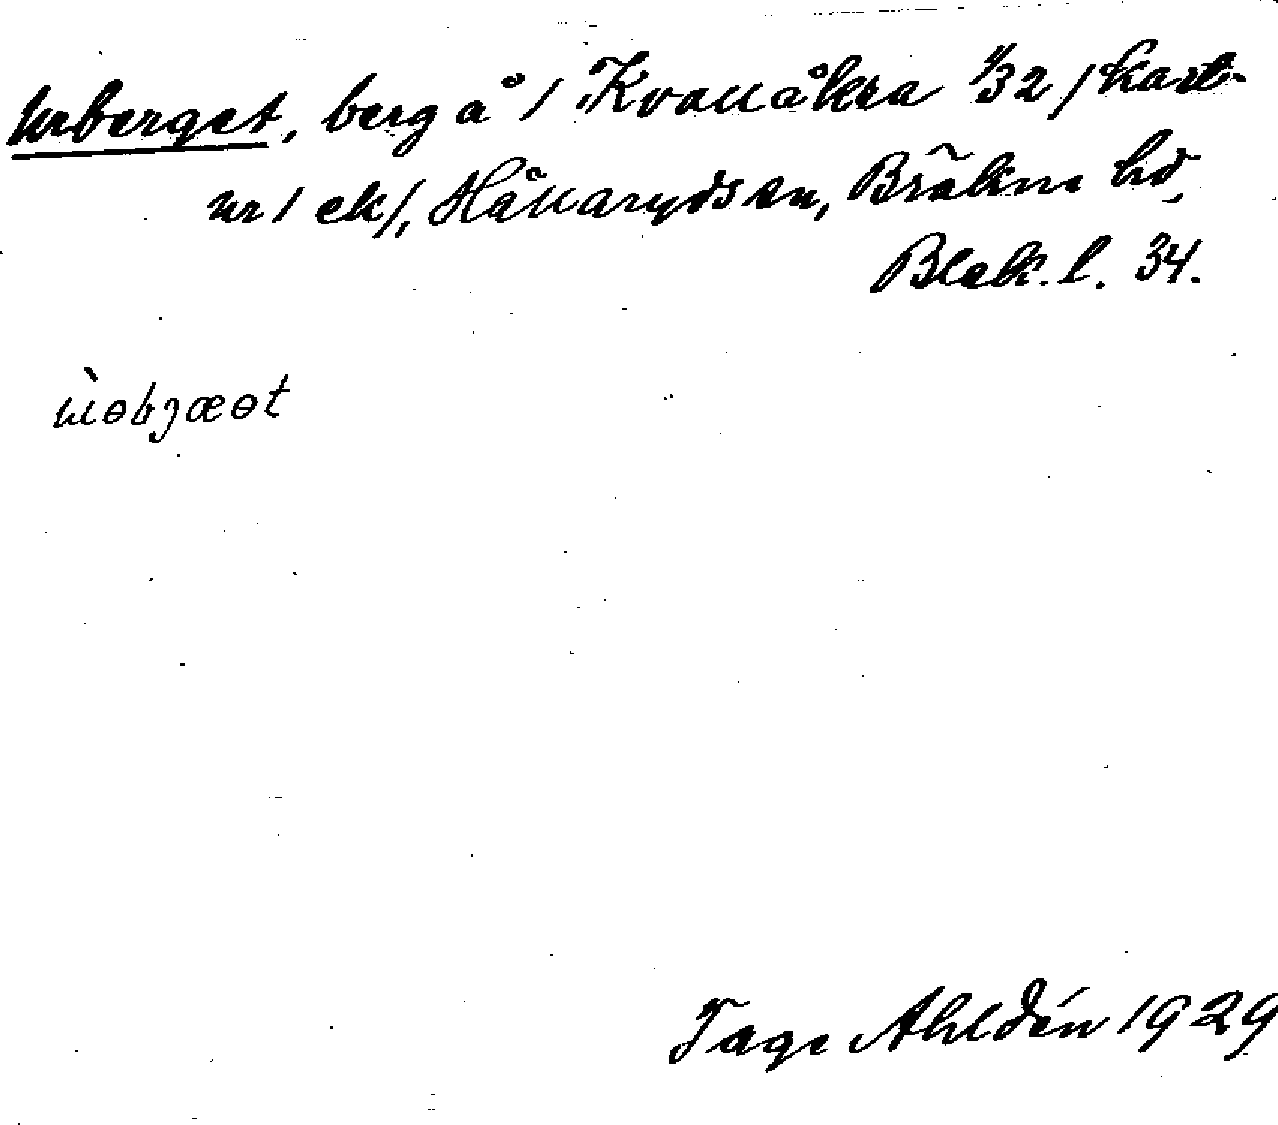 Urberget, berg å / Kvanåkra 1/32 / kart-
nr / ek/, Hällaryds sn, Bräkne hd,
Blek. l. 34.
ùəbjæət
Tage Ahldén 1929